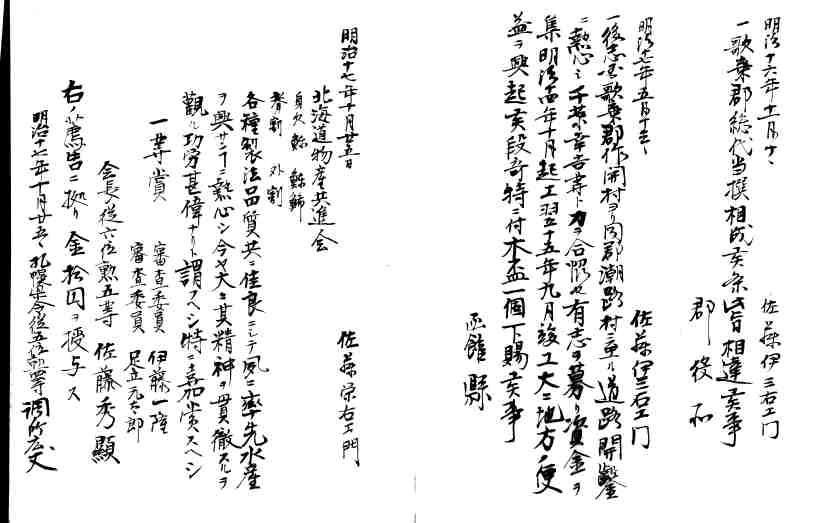 明治十六年十一月十日
佐藤伊三右エ門
一歌棄郡総代当撰相成候条此旨相達候事
郡役所
明治十七年五月十三日
佐藤伊三右エ門
一後志国歌棄郡作開村ヨリ同郡潮路村ニ至ル道路開鑿
ニ熱心シ千葉幸吉等ト力ヲ合 有志ヲ募リ資金ヲ
集明治十四年十月起工翌十五年九月竣工大ニ地方ノ便
益ヲ興起候段奇特ニ付木盃一個下賜候事
函館縣
明治十七年十月廿五日
佐藤栄右エ門
北海道物産共進会
身欠鯡 鯡鯑
脊割 外割
各種製法品質共ニ佳良ニシテ夙ニ率先水産
ヲ興サンコニ熱心シ今ヤ大ニ其精神ヲ貫徹スルヲ
観ル功労甚偉ナリト謂スヘシ特ニ嘉賞スヘシ
一等賞
審査委員 伊藤一隆
審査委員 足立元太郎
会長従六位勲五等 佐藤秀顕
右ノ薦告ニ拠リ金拾円ヲ授与ス
明治十七年十月廿五日札幌県令従五位勲四等調所広丈